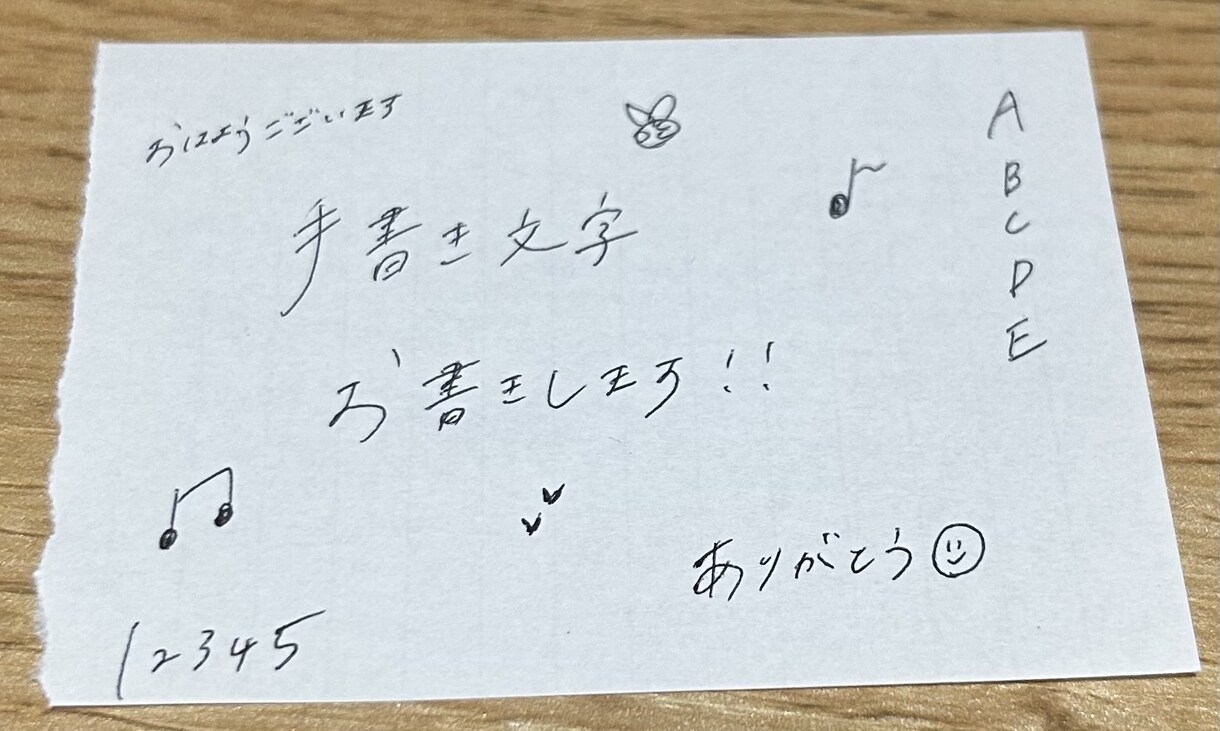 おはようございます
手書き文字
お書きします!!
ありがとう
12345
A
B
C
D
E